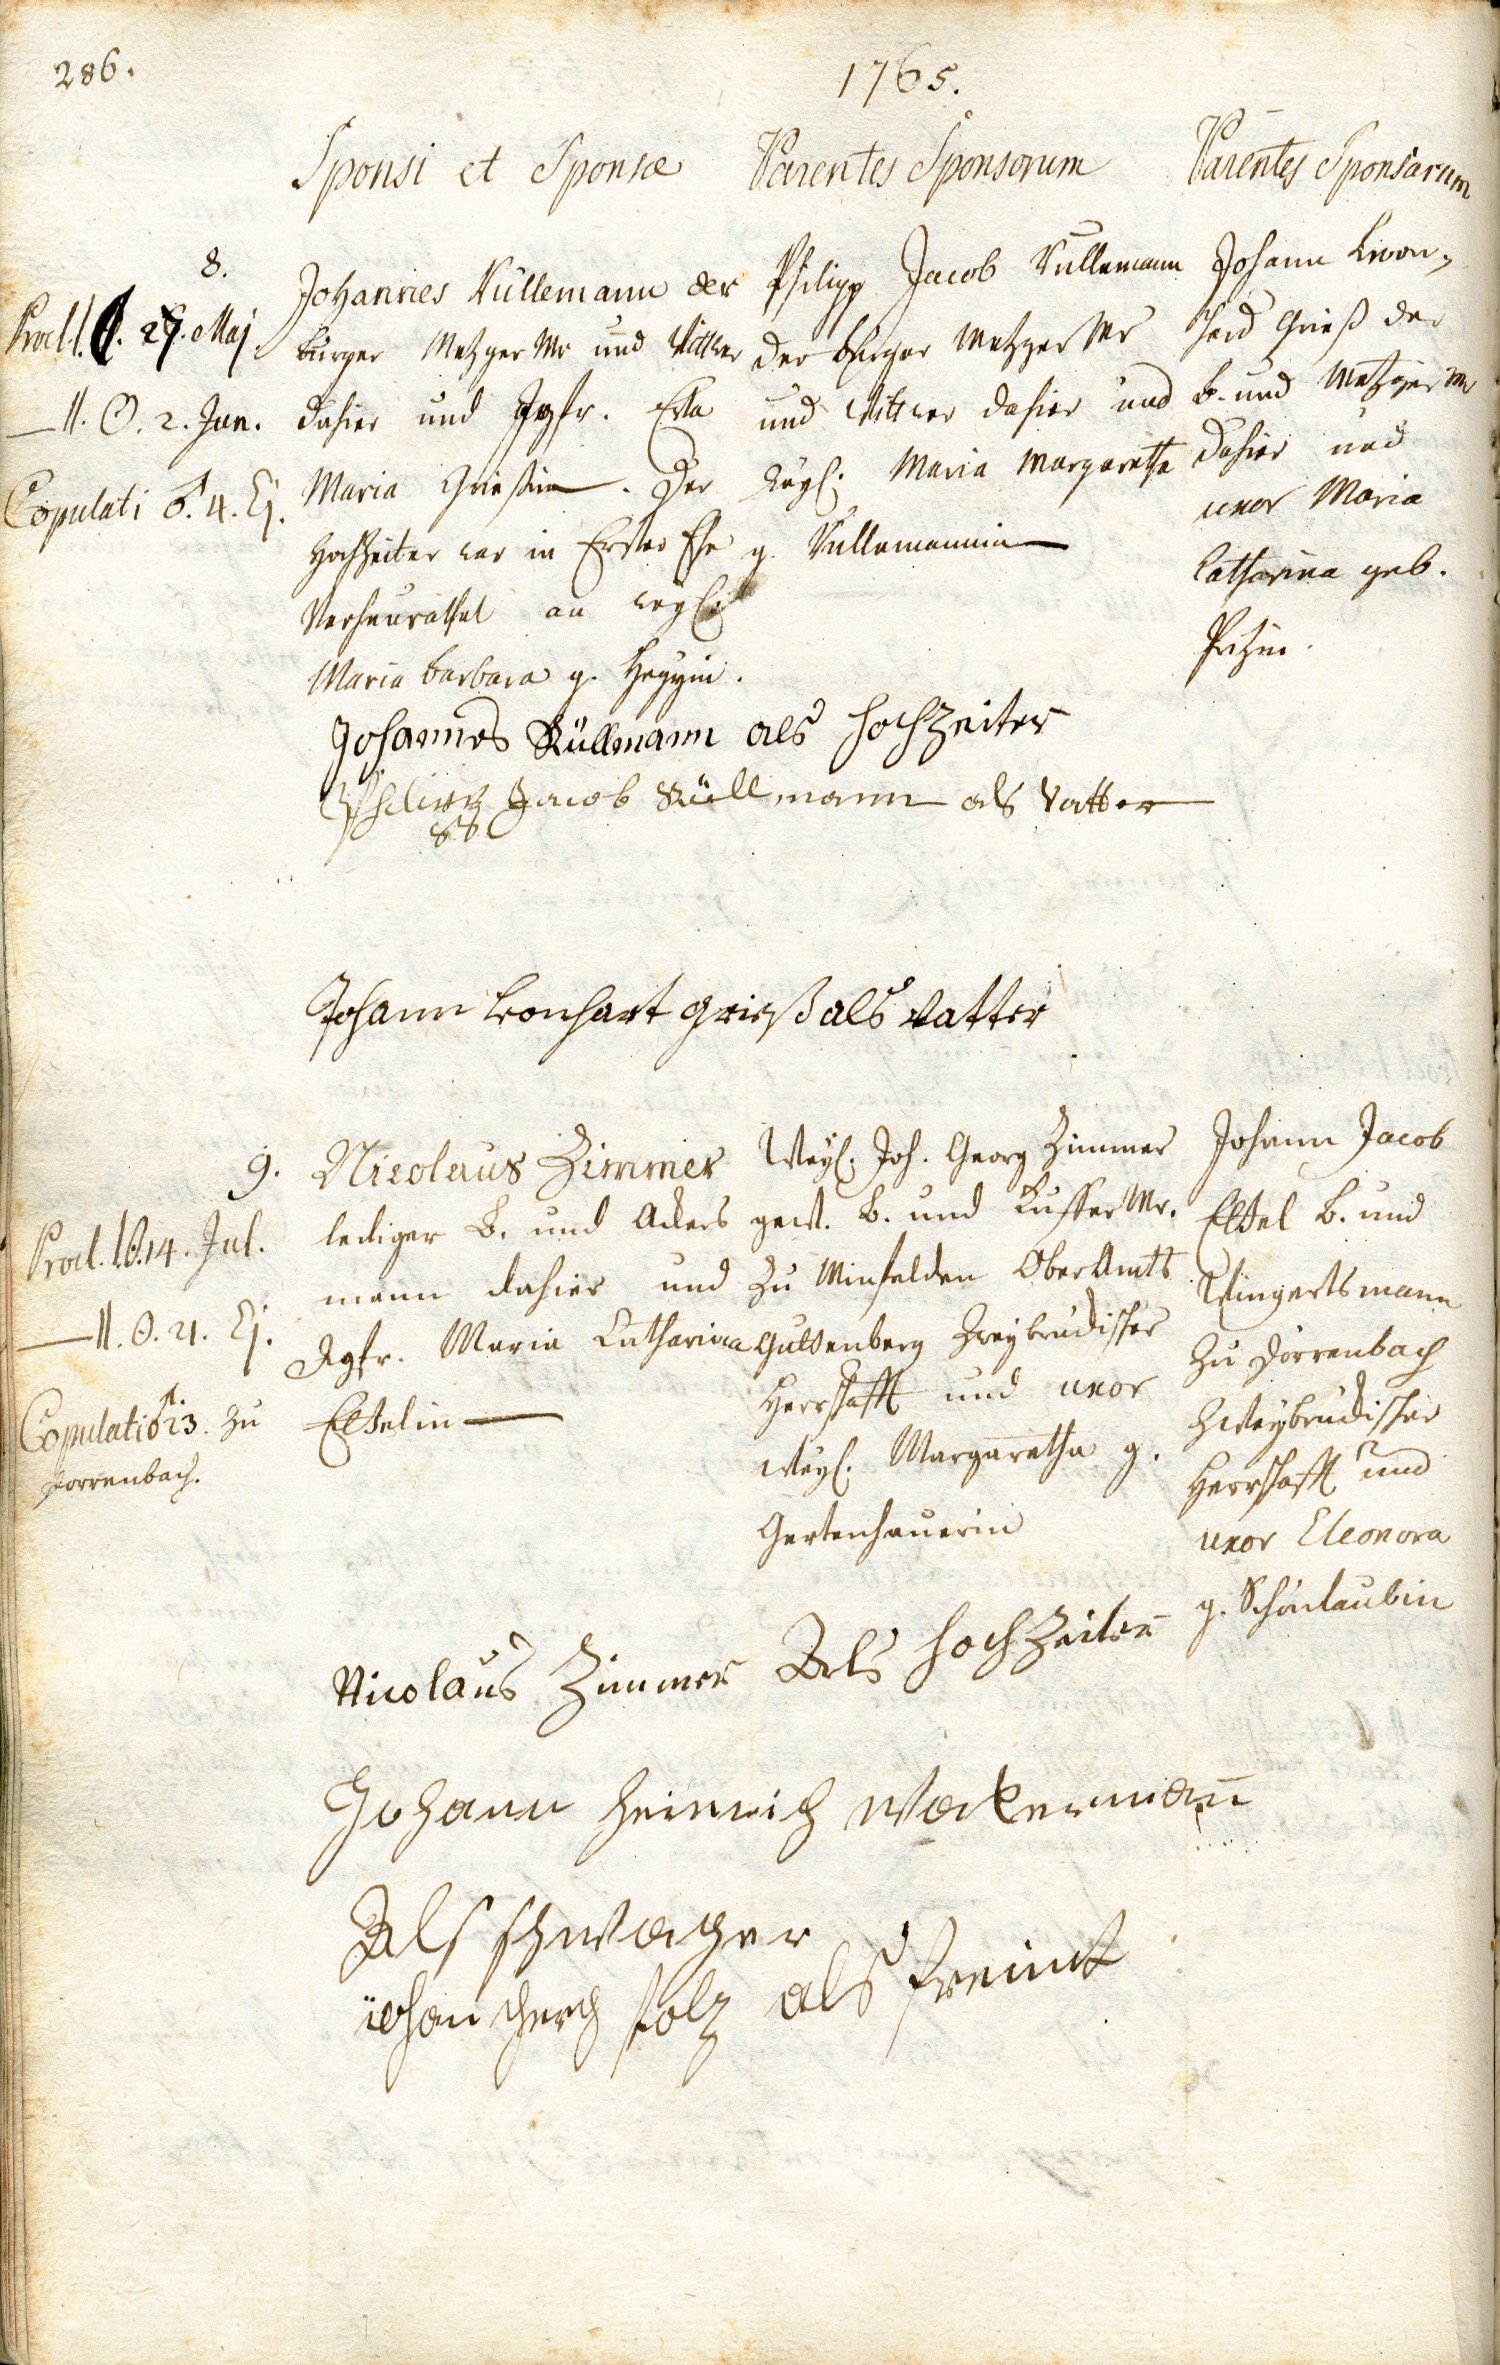 286.
1765.
Sponsi et Sponsæ
Parentes Sponsorum
Parentes Sponsarum
8.
Procl. I. 27. Maj.
— II. ⊙. 2. Jun.
Copulati ♂. 4. Ej.
Johannes Küllemann der
burger Metzger Mr und Wittwer
dahier und Jgfr. Eva
Maria Grießin. Der
Hochzeiter war in Erster Ehe
Verheurathet an weyl.
Maria Barbara g.
Philipp Jacob Küllemann
der burger Metzger Mr
und Wittwer dahier und
weyl. Maria Margaretha
g. Küllemannin
Johann Leon-
hard Grieß der
b. und Metzger Mr
dahier und
uxor Maria
Catharina geb.
Johannes Küllmann als Hochzeiter
Philipp Jacob Küllmann als Vatter
Johann Leonhart Grieß als Vatter
9.
Procl. I. ⊙. 14. Jul.
— II. ⊙. 21. Ej.
Copulati ♂ 23. zu
Dorrenbach.
Nicolaus Zimmer
lediger B. und Ackers
mann dahier und
Jgfr. Maria Catharina
Eltelin
Weyl. Joh. Georg Zimmer
gew. B. und Kuffer Mr.
zu Minfelden OberAmts
Guttenberg Zweybrückischer
Herrschafft und uxor
weyl. Margaretha g.
Gertenhauerin
Johann Jacob
Eltel B. und
Wingertsmann
zu Dörrenbach
Zweybrückischer
Herrschafft und
uxor Eleonora
g. Schönlaubin
Nicolaus Zimmer Als Hochzeiter
Johann Heinrich Wackermañ
Als schwacher
iohan gerg folz als freint